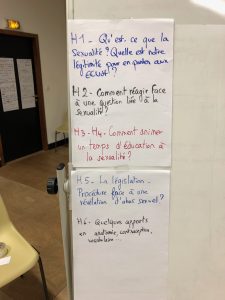 H1 - Qu'est-ce que la
sexualité? Quelle est notre
légitimité pour en parler aux
H2 - Comment réagir face
à une question liée à la
sexualité?
H3 - H4 - Comment animer
un temps d'éducation à
la sexualité?
H5 - La législation -
Procédure face à une
révélation d'abus sexuel?
H6 - Quelques apports
en anatomie, contraception,
vocabulaire...